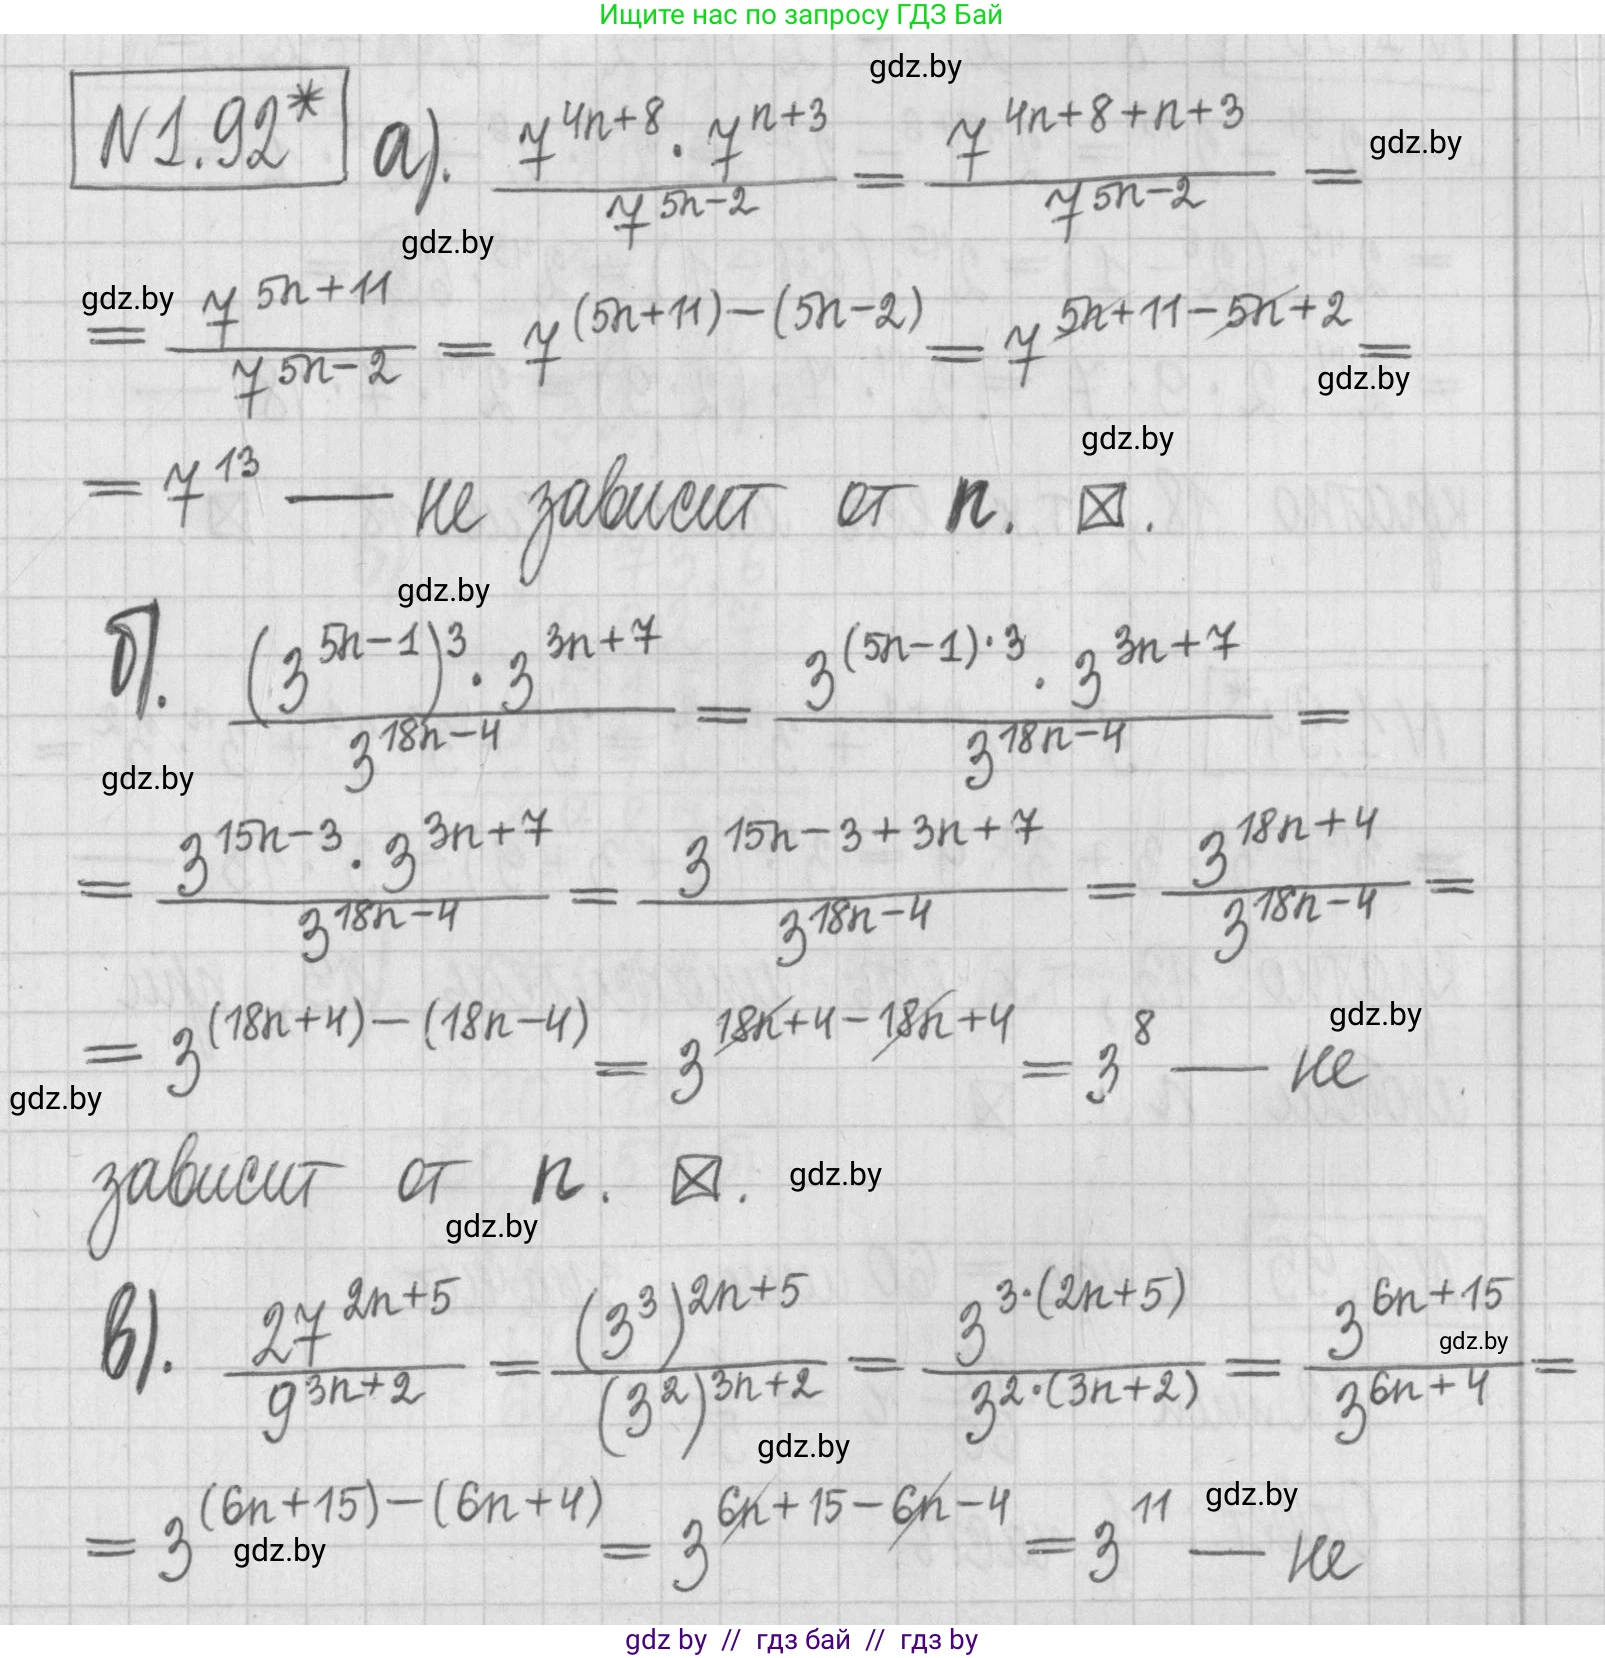 Ищите нас по запросу ГДЗ Бай
gdz.by
N1.92* а). 7^{4n+8} · 7^{n+3} / 7^{5n-2} = 7^{4n+8+n+3} / 7^{5n-2} =
gdz.by
gdz.by
gdz.by
= 7^{5n+11} / 7^{5n-2} = 7^{(5n+11)-(5n-2)} = 7^{5n+11-5n+2} =
gdz.by
gdz.by
= 7^{13} — не зависит от n. ☒.
gdz.by
б). (3^{5n-1})^3 · 3^{3n+7} / 3^{18n-4} = 3^{(5n-1)·3} · 3^{3n+7} / 3^{18n-4} =
gdz.by
= 3^{15n-3} · 3^{3n+7} / 3^{18n-4} = 3^{15n-3+3n+7} / 3^{18n-4} = 3^{18n+4} / 3^{18n-4} =
= 3^{(18n+4)-(18n-4)} = 3^{18n+4-18n+4} = 3^8 — не
gdz.by
gdz.by
зависит от n. ☒.
gdz.by
gdz.by
в). 27^{2n+5} / 9^{3n+2} = (3^3)^{2n+5} / (3^2)^{3n+2} = 3^{3·(2n+5)} / 3^{2·(3n+2)} = 3^{6n+15} / 3^{6n+4} =
gdz.by
gdz.by
= 3^{(6n+15)-(6n+4)} = 3^{6n+15-6n-4} = 3^{11} — не
gdz.by
gdz.by
gdz by // гдз бай // гдз by